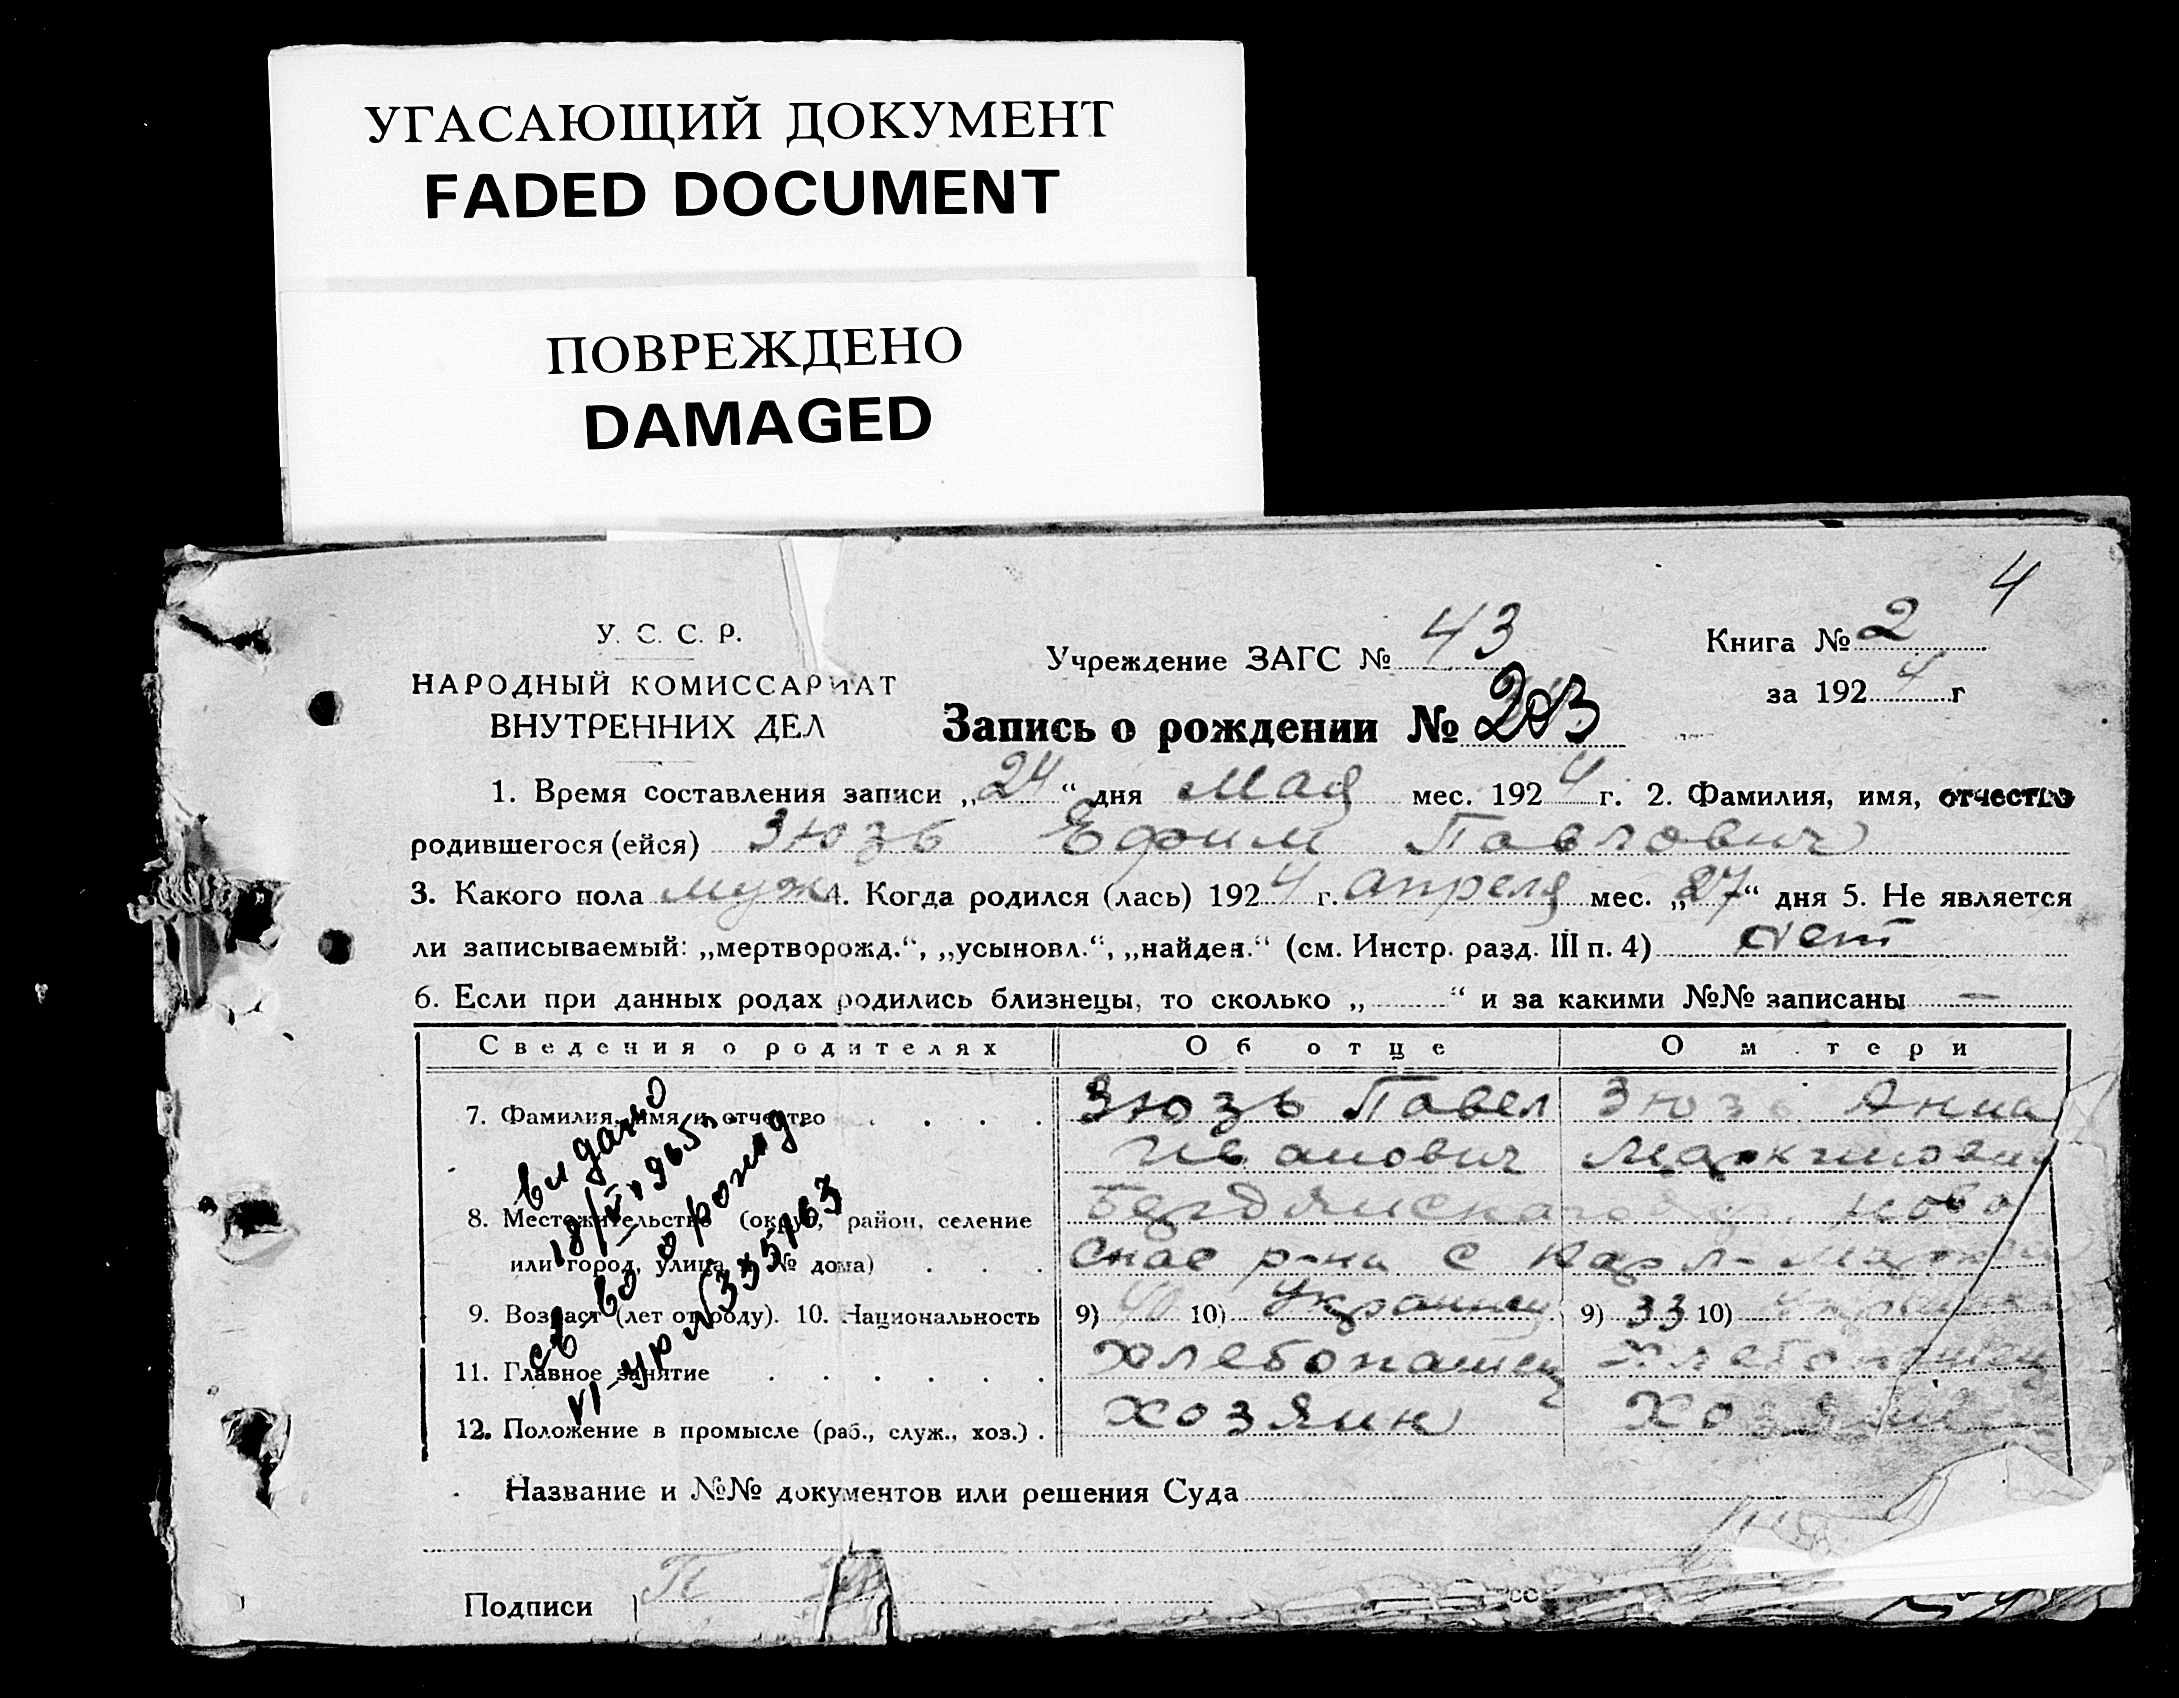 УГАСАЮЩИЙ ДОКУМЕНТ
FADED DOCUMENT
ПОВРЕЖДЕНО
DAMAGED
4
У. С. С. Р.
НАРОДНЫЙ КОМИССАРИАТ
ВНУТРЕННИХ ДЕЛ
Учреждение ЗАГС № 43
Книга № 2
за 192 4 г
Запись о рождении № 203
1. Время составления записи „24“ дня Мая мес. 192 4 г. 2. Фамилия, имя, отчество
родившегося (ейся) Зюзь Ефим Павлович
3. Какого пола муж 4. Когда родился (лась) 192 4 г. апреля мес. „27“ дня 5. Не является
ли записываемый: „мертворожд.“, „усыновл.“, „найден.“ (см. Инстр. разд. III п. 4) Нет
6. Если при данных родах родились близнецы, то сколько „ “ и за какими №№ записаны —
Сведения о родителях Об отце О м тери
7. Фамилия, имя и отчество . . . . Зюзь Павел Зюзь Анна
Иванович
8. Местожительство (округ, район, селение Бердянского Ново
или город, улица и № дома) . . . Спас р-на с Карл-Маркса
9. Возраст (лет от роду). 10. Национальность 9) 40 10) Украинец 9) 33 10)
11. Главное занятие . . . . . . Хлебопашец Хлебопашец
12. Положение в промысле (раб., служ., хоз.) . Хозяин Хозяин
выдано
18/VI 1965
св во о рожд.
VI-УР
Название и №№ документов или решения Суда
Подписи